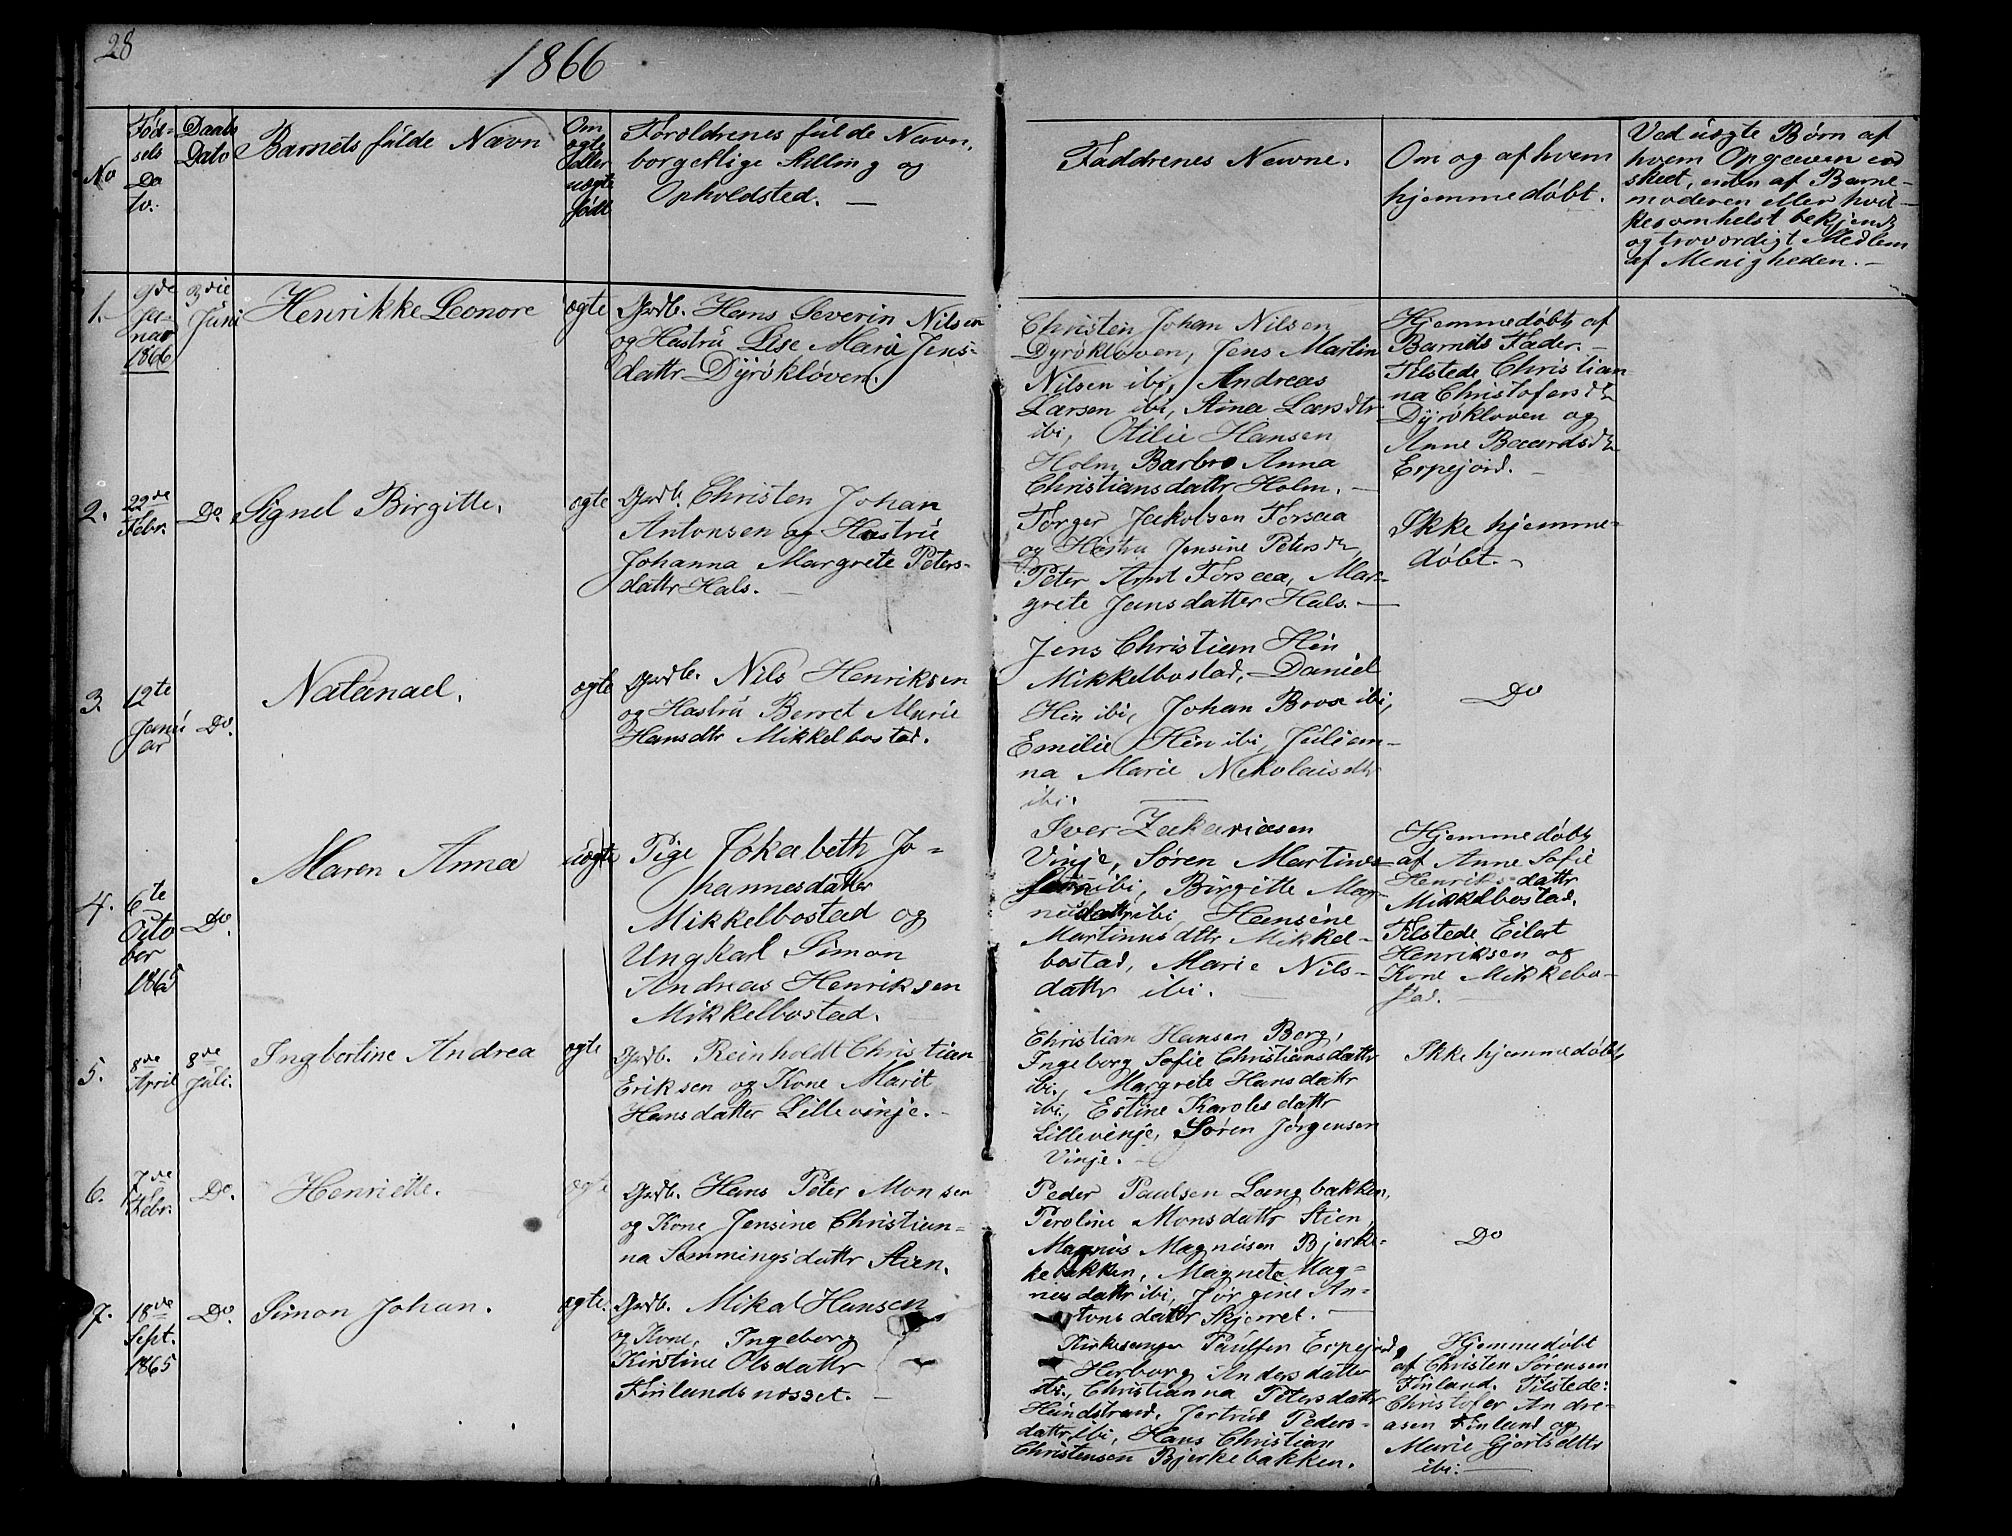 28
1866
No
Fød-
sels
Da
to.
Daabs
Dato
Barnets fulde Navn
Om
ægte
Eller
uægte
født
Foroldrenes fulde Navn,
borgerlige Stilling og
Opholdsted. —
Faddrenes Nevne.
Om og af hvem
hjemmedøbt.
Ved uægte Børn af
hvem Opgaven er
skeet, enten af Barne-
moderen eller hvil-
kesomhelst bekjendt
og troværdigt Medlem
af Menigheden. —
1.
9de
Ja-
nuar
1866
3die
Juni
Henrikke Leonore
ægte
Grdb. Hans Severin Nilsen
og Hustru Lise Marie Jens-
dattr Dyrøkløven.
Christen Johan Nilsen
Dyrøkløven, Jens Martin
Nilsen ibi, Andreas
Larsen ibi, Stina Larsdtr
ibi, Otilie Hansen
Holm, Barbro Anna
Christiansdattr Holm. —
Hjemmedøbt af
Barnets Fader. —
Tilstede Christian
na Christofersdtr
Dyrøkløven og
Anne Baardsdtr
Erpejord. —
2.
22de
Febr.
Do
Signel Birgitte.
ægte
Grdb. Christen Johan
Antonsen og Hustru
Johanna Margrete Peters-
dattr Hals. —
Torger Jakobsen Forsaa
og Hustru Jensine Petersdtr,
Peter Arnt Forsaa, Mar-
grete Jensdatter Hals. —
Ikke hjemme-
døbt. —
3.
12te
Janu
ar
Do.
Natanael.
ægte
Grdb. Nils Henriksen
og Hustru Berret Marie
Hansdtr Mikkelbostad.
Jens Christian Hin
Mikkelbostad, Daniel
Hin ibi, Johan Brox ibi,
Emilie Hin ibi, Julian-
na Marie Nikolaisdtr
ibi.
Do
4.
6te
Octo
ber
1865
Do.
Maren Anna
uægte
Pige Jokabeth Jo-
hannesdatter
Mikkelbostad og
Ungkarl Simon
Andreas Henriksen
Mikkelbostad.
Iver Zakariasen
Vinje, Søren Martines-
sen ibi, Birgitte Mag-
nusdattr ibi, Hansine
Martinusdttr Mikkel-
bostad, Marie Nils-
dattr ibi. —
Hjemmedøbt
af Anne Sofie
Henriksdattr
Mikkelbostad.
Tilstede Eilert
Henriksen og
Kone Mikkelbo-
stad. —
5.
8de
April
8de
Juli.
Ingbertine Andrea
ægte
Grdb. Reinholdt Christian
Eriksen og Kone Marit
Hansdatter Lillevinje. —
Christian Hansen Berg,
Ingeborg Sofie Christiansdattr
ibi, Margrete Hansdattr
ibi, Estine Karolesdattr
Lillevinje, Søren Jørgensen
Vinje. —
Ikke hjemmedøbt
6.
7de
Febr.
Do.
Henriette. —
ægte
Grdb. Hans Peter Monsen
og Kone Jensine Christian-
na Semmingsdattr Stien.
Peder Paulsen Langbakken,
Peroline Monsdattr Stien,
Magnus Magnusen Bjerke-
kebakken, Magneta Mag-
nusdattr ibi, Jørgine An-
tonsdattr Skjerret. —
Do
7.
18de
Sept.
1865
Do.
Simon Johan.
ægte.
Grdb. Mikal Hansen
og Kone, Ingeborg
Kirstine Olsdattr
Finlandsnesset. —
Kirkesanger Paulsen Erpejord,
Herborg Andersdatter
ibi, Christianna Petersdattr
Hundstrand, Jertrud Peders-
dattr ibi, Hans Christian
Christensen Bjerkebakken.
Hjemmedøbt
af Christen Sørensen
Finland. Tilstede:
Christofer Andre-
asen Finland og
Marie Gjertsdttr
ibi. —